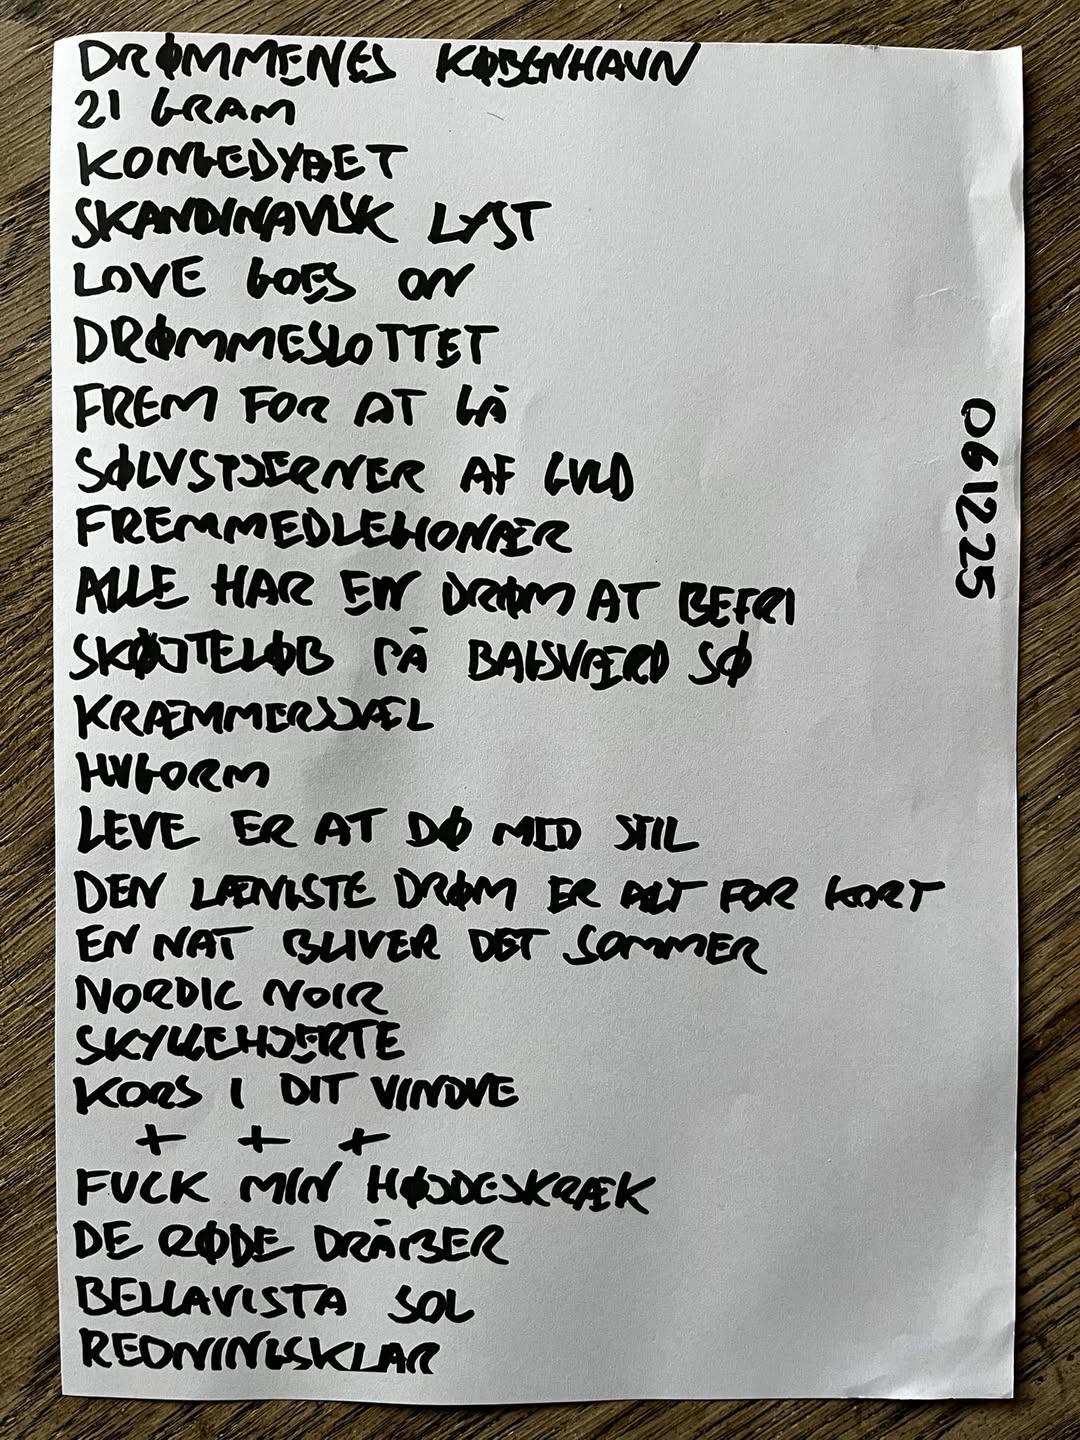 DRØMMENES KØBENHAVN
21 GRAM
KONGEDYBET
SKANDINAVISK LYST
LOVE GOES ON
DRØMMESLOTTET
FREM FOR AT GÅ
SØLVSTJERNER AF GULD
FREMMEDLEGIONÆR
ALLE HAR EN DRØM AT BEFRI
SKØJTELØB PÅ BAGSVÆRD SØ
KRÆMMERSJÆL
HUGORM
LEVE ER AT DØ MED STIL
DEN LÆNGSTE DRØM ER ALT FOR KORT
EN NAT BLIVER DET SOMMER
NORDIC NOIR
SKYLLEHJERTE
KORS I DIT VINDUE
+ + +
FUCK MIN HØJDESKRÆK
DE RØDE DRÅBER
BELLAVISTA SOL
REDNINGSKLAR
061225